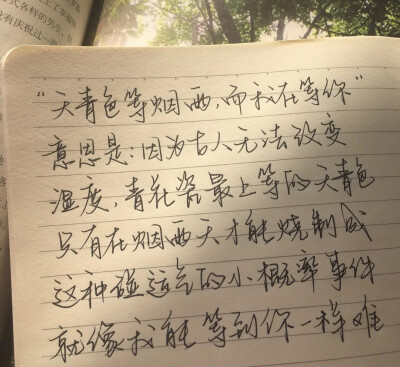 “天青色等烟雨，而我在等你”
意思是：因为古人无法改变
湿度，青花瓷最上等的天青色
只有在烟雨天才能烧制成
这种碰运气的小概率事件
就像我能等到你一样难